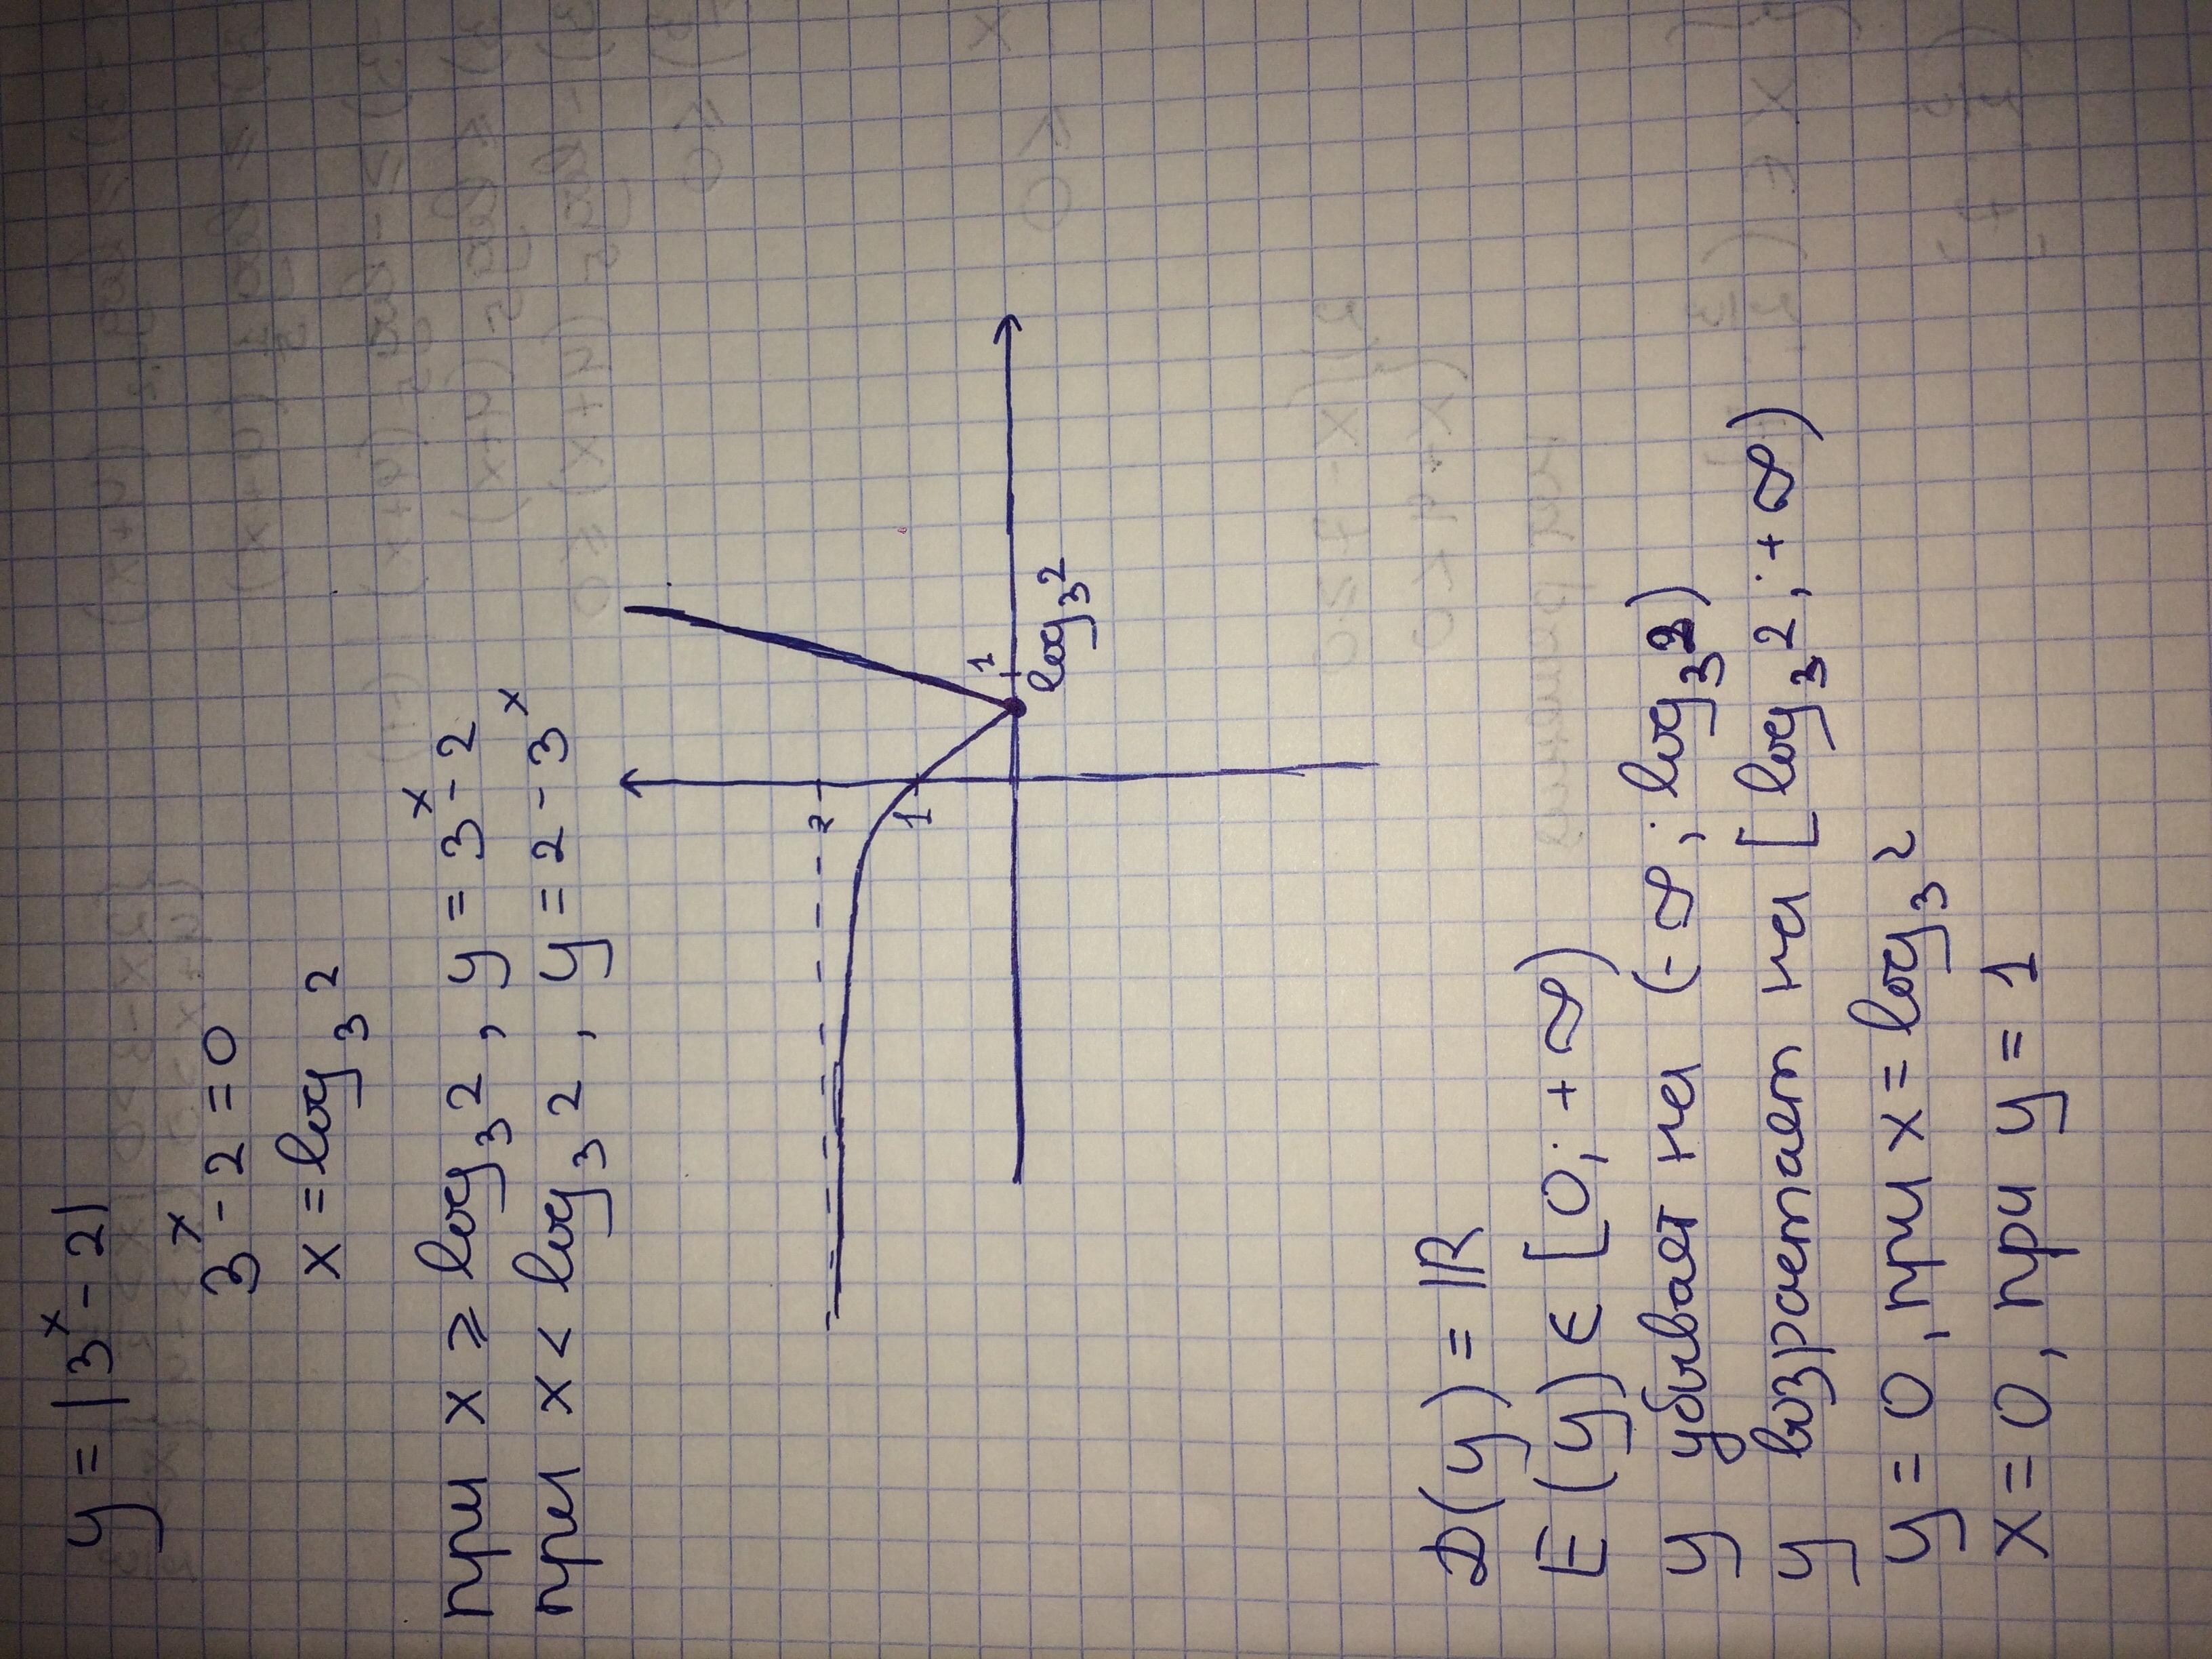 y = |3ˣ - 2|
3ˣ - 2 = 0
x = log₃2
при x ⩾ log₃2, y = 3ˣ - 2
при x < log₃2, y = 2 - 3ˣ
2
1
1
log₃2
D(y) = ℝ
E(y) ∈ [0; +∞)
y убывает на (-∞; log₃2)
y возрастает на [log₃2; +∞)
y = 0, при x = log₃2
x = 0, при y = 1